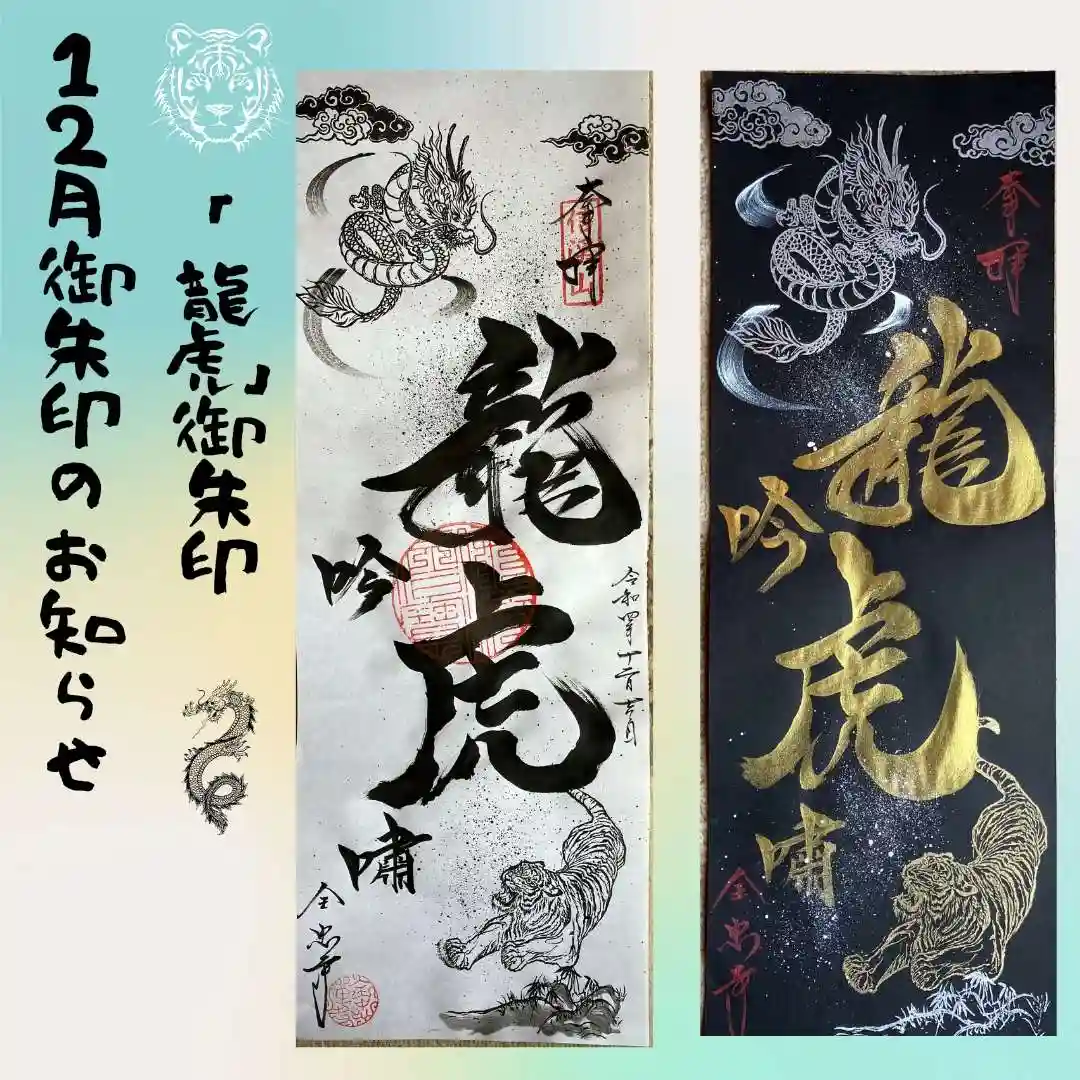 12月御朱印のお知らせ
「龍虎」御朱印
奉拝
龍
吟
虎
嘯
令和四年十二月吉日
全忠寺
奉拝
龍
吟
虎
嘯
全忠寺